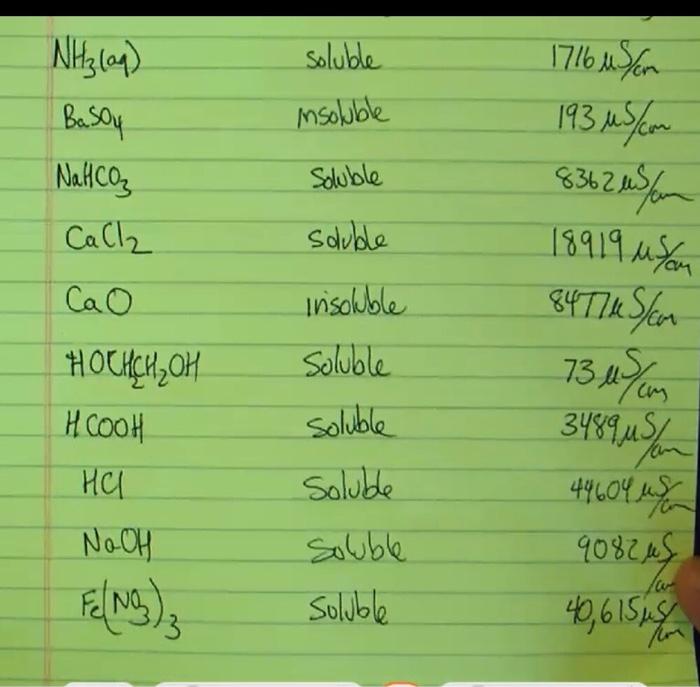 NH3(aq) soluble 1716 µS/cm
BaSO4 insoluble 193 µS/cm
NaHCO3 Soluble 8362 µS/cm
CaCl2 Soluble 18919 µS/cm
CaO insoluble 8477µS/cm
HOCH2CH2OH Soluble 73 µS/cm
HCOOH Soluble 3489µS/cm
HCl Soluble 44604 µS/cm
NaOH Soluble 9082 µS/cm
Fe(NO3)3 Soluble 40,615µS/cm